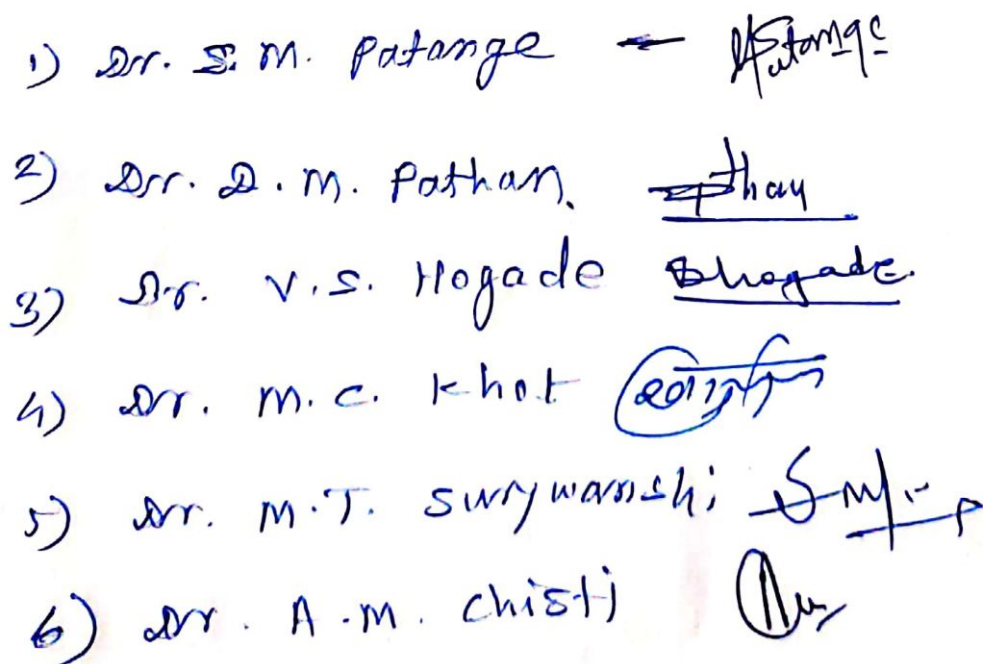 1) Dr. S. M. Patange - Patange
2) Dr. D. M. Pathan.
3) Dr. V. S. Hogade Bhogade.
4) Dr. M. C. Khot
5) Dr. M. T. Surywanshi
6) Dr. A. M. Chisti